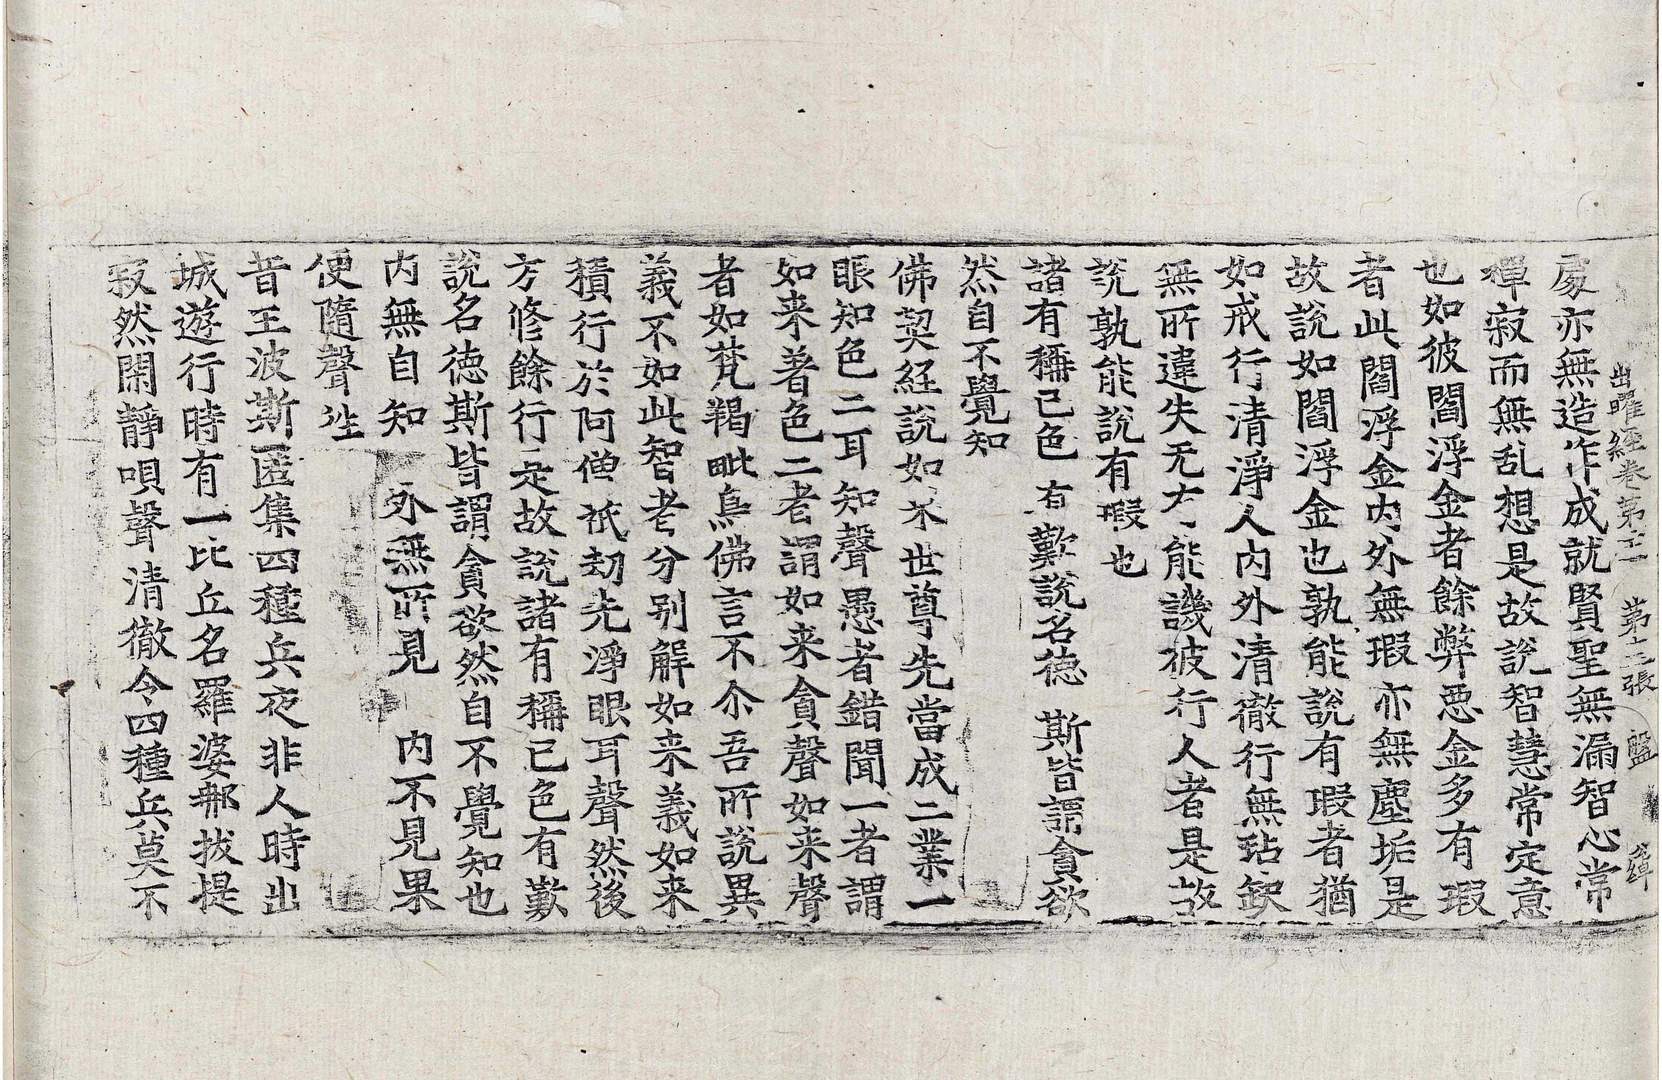 出曜經卷第 第十二張 盤
處亦無造作成就賢聖無漏智心常
禪寂而無乱想是故說智慧常定意
也如彼閻浮金者餘弊惡金多有瑕
者此閻浮金内外無瑕亦無塵垢是
故說如閻浮金也孰能說有瑕者猶
如戒行清淨人内外清徹行無玷缺
無所違失无有能譏彼行人者是故
說孰能說有瑕也
諸有稱己色 有歎說名德 斯皆謂貪欲
然自不覺知
佛契経說如来世尊先當成二業一
眼知色二耳知聲愚者錯聞一者謂
如来著色二者謂如来貪聲如来聲
者如梵羯毗鳥佛言不尒吾所說異
義不如此智者分別解如来義如来
積行於阿僧祇劫先淨眼耳聲然後
方修餘行是故說諸有稱己色有歎
說名德斯皆謂貪欲然自不覺知也
内無自知 外無所見 内不見果
便隨聲往
昔王波斯匿集四種兵夜非人時出
城遊行時有一比丘名羅婆那拔提
寂然閑靜唄聲清徹令四種兵莫不